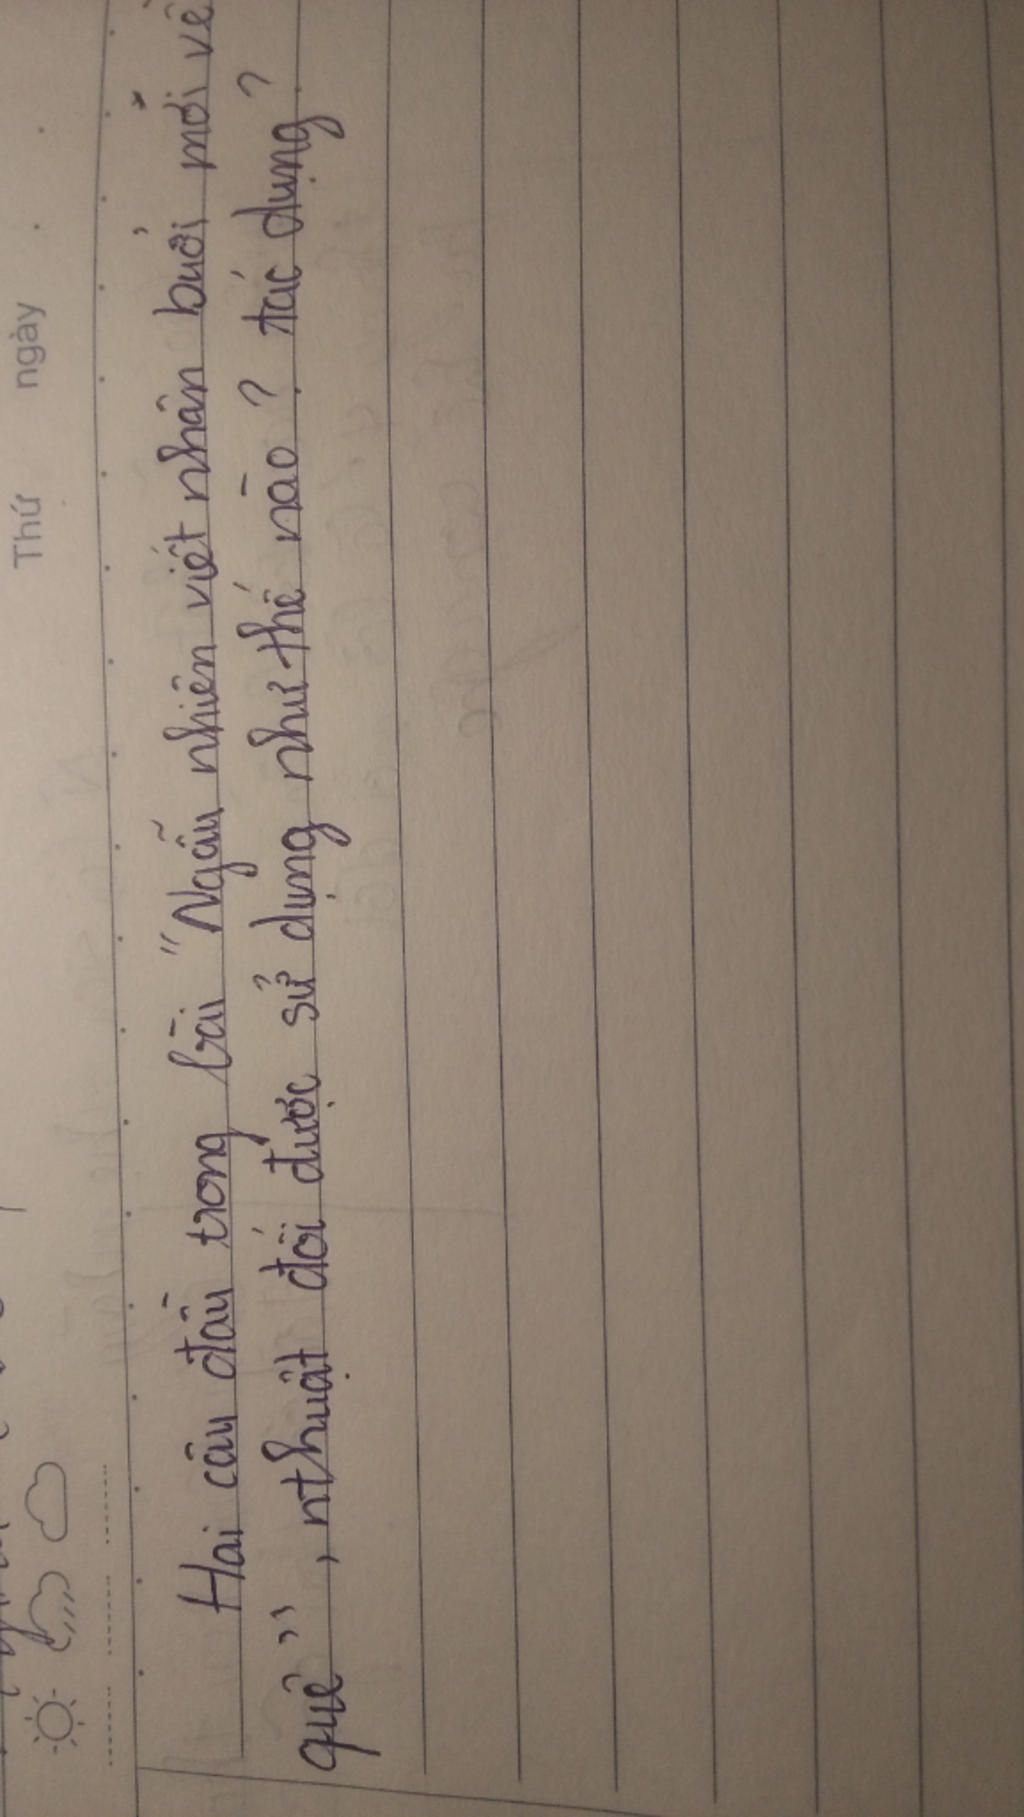 Thứ ngày
Hai câu đầu trong bài "Ngẫu nhiên viết nhân buổi mới về
quê", nthuật đối được sử dụng như thế nào? tác dụng?